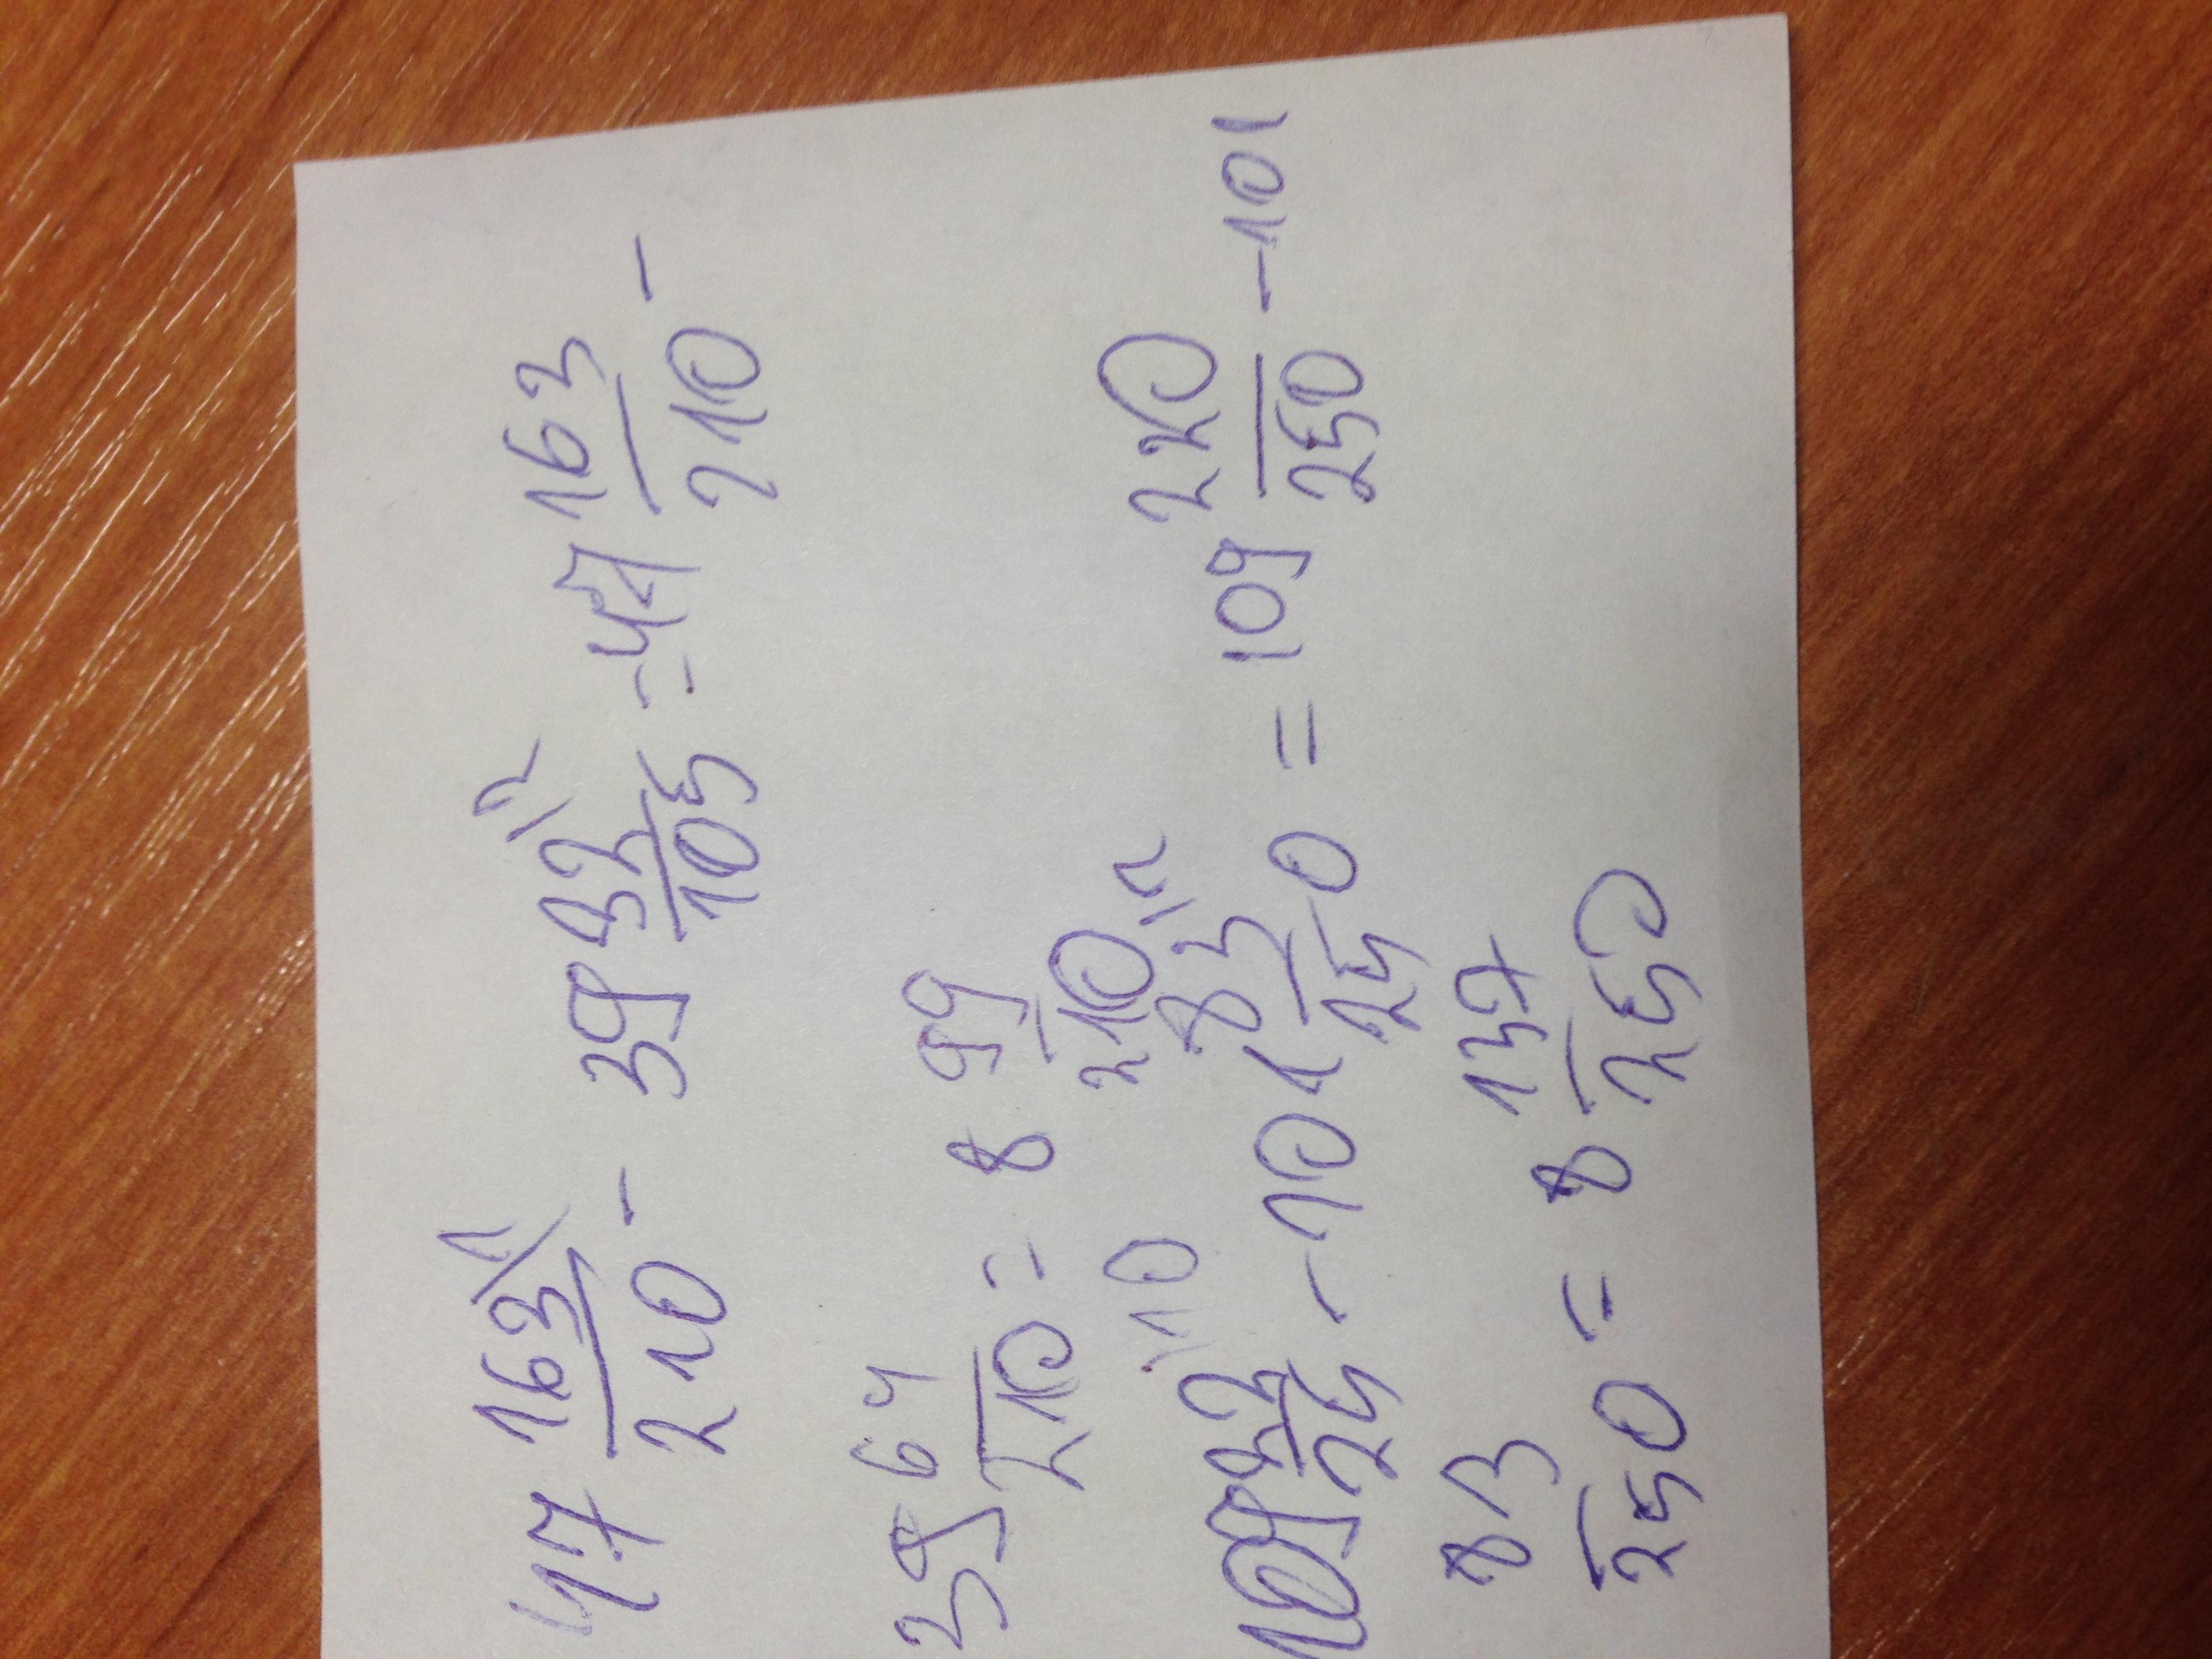 47 163/210 \1 - 39 32/105 \2 = 47 163/210 -
39 64/210 = 8 99/210
109 22/25 \10 - 101 83/250 \1 = 109 220/250 - 101
83/250 = 8 137/250